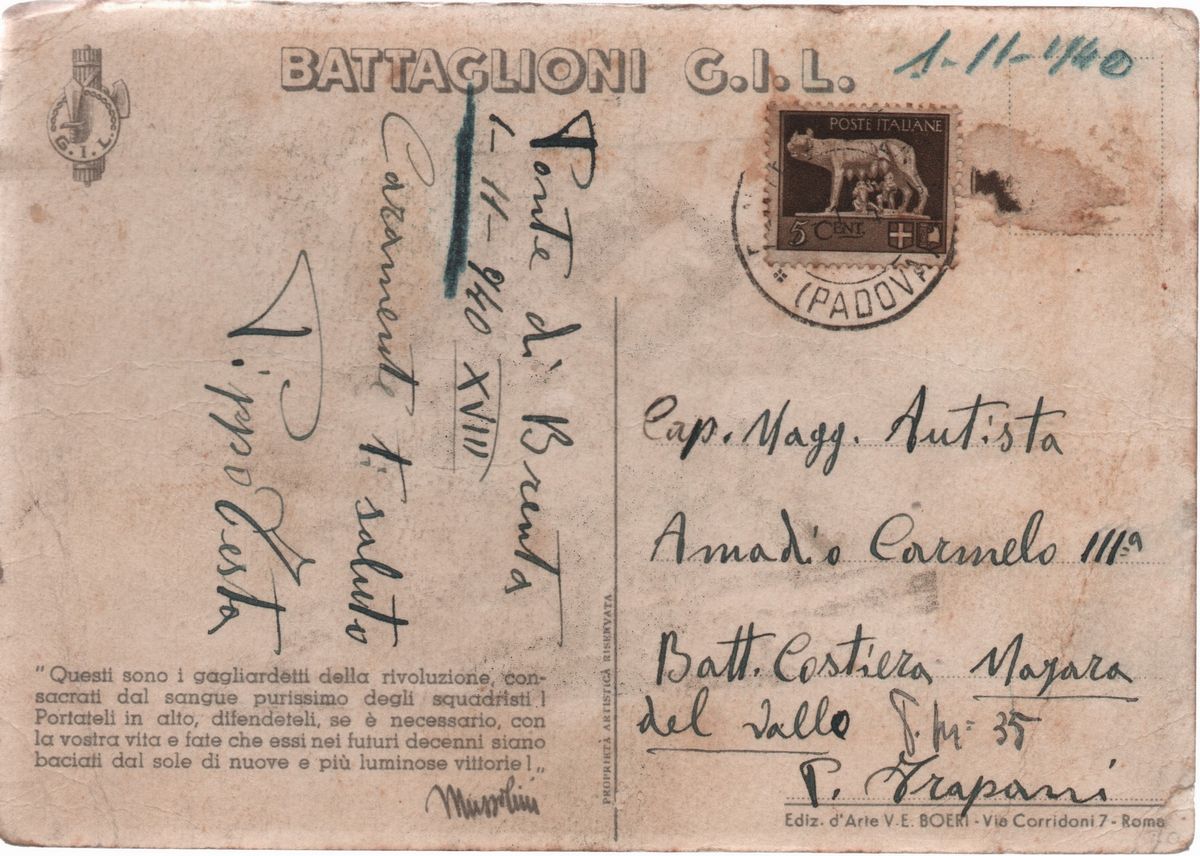 BATTAGLIONI G.I.L.
1-11-940
G.I.L
POSTE ITALIANE
5 CENT.
(PADOVA)
Ponte di Brenta
1-11-940 XVIII
Caramente ti saluto
Pippo Testa
Cap. Magg. Autista
Amadio Carmelo IIIª
Batt. Costiera Mazara
del Vallo P. M= 35
P. Trapani
"Questi sono i gagliardetti della rivoluzione, con-
sacrati dal sangue purissimo degli squadristi!
Portateli in alto, difendeteli, se è necessario, con
la vostra vita e fate che essi nei futuri decenni siano
baciati dal sole di nuove e più luminose vittorie!„
Mussolini
PROPRIETÀ ARTISTICA RISERVATA
Ediz. d'Arte V.E. BOERI - Via Corridoni 7 - Roma